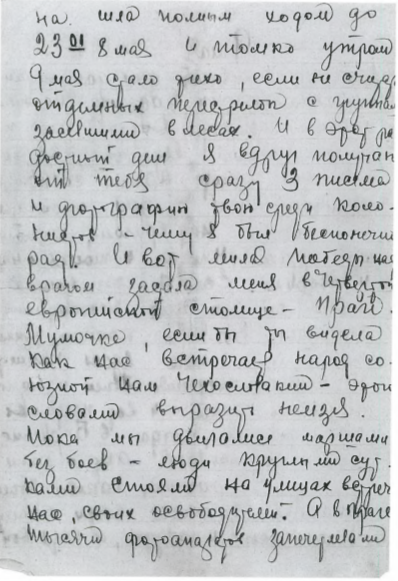 на. шла полным ходом до
23 01 8 мая и только утром
9 мая стало тихо, если не счита
отдельных перестрелок с группам
засевшими в лесах. И в этот ра
достный день я вдруг получаю
от тебя сразу 3 письма
и фотографии твои среди
чему я был бесконечно
рад. И вот миля победы над
врагом застала меня в четвертой
европейской столице - Праге.
Мумочка, если бы ты видела
как нас встречает народ со
юзной нам Чехословакии - этого
словами выразить нельзя.
Пока мы двигались маршами
без боев - люди круглыми сут
ками стояли на улицах встреч
нас, своих освободителей. А в Праге
тысячи фотоаппаратов запечатлевали